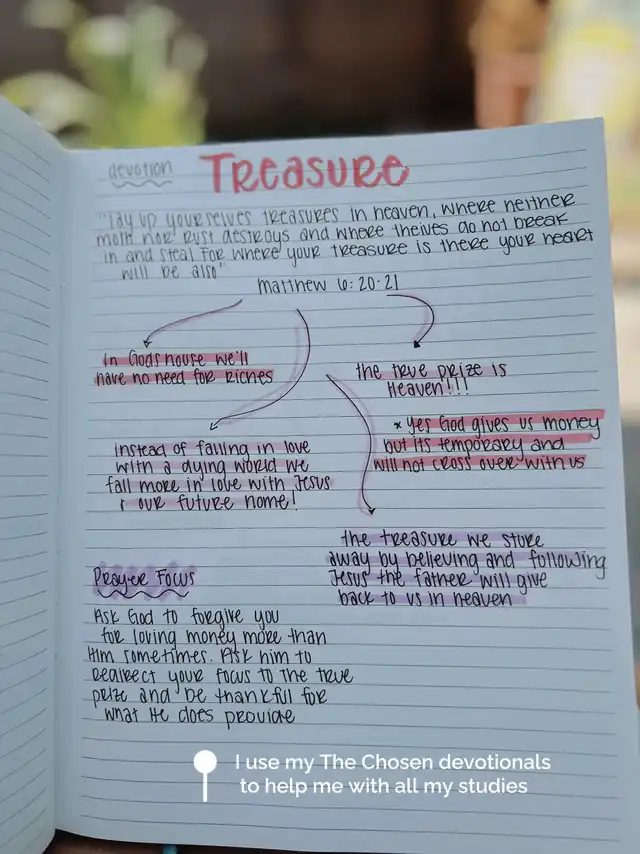 devotion TREASURE
"Lay up yourselves treasures in heaven, where neither
moth nor rust destroys and where theives do not break
in and steal for where your treasure is there your heart
will be also"
matthew 6:20-21
in Gods house we'll
have no need for riches
the true prize is
Heaven!!!
* Yes God gives us money
but its temporary and
will not cross over with us
instead of falling in love
with a dying world we
fall more in love with Jesus
& our future home!
the treasure we store
away by believing and following
Jesus the father will give
back to us in heaven
Prayer Focus
Ask God to forgive you
for loving money more than
Him sometimes. Ask him to
redirect your focus to the true
prize and be thankful for
what He does provide
I use my The Chosen devotionals
to help me with all my studies